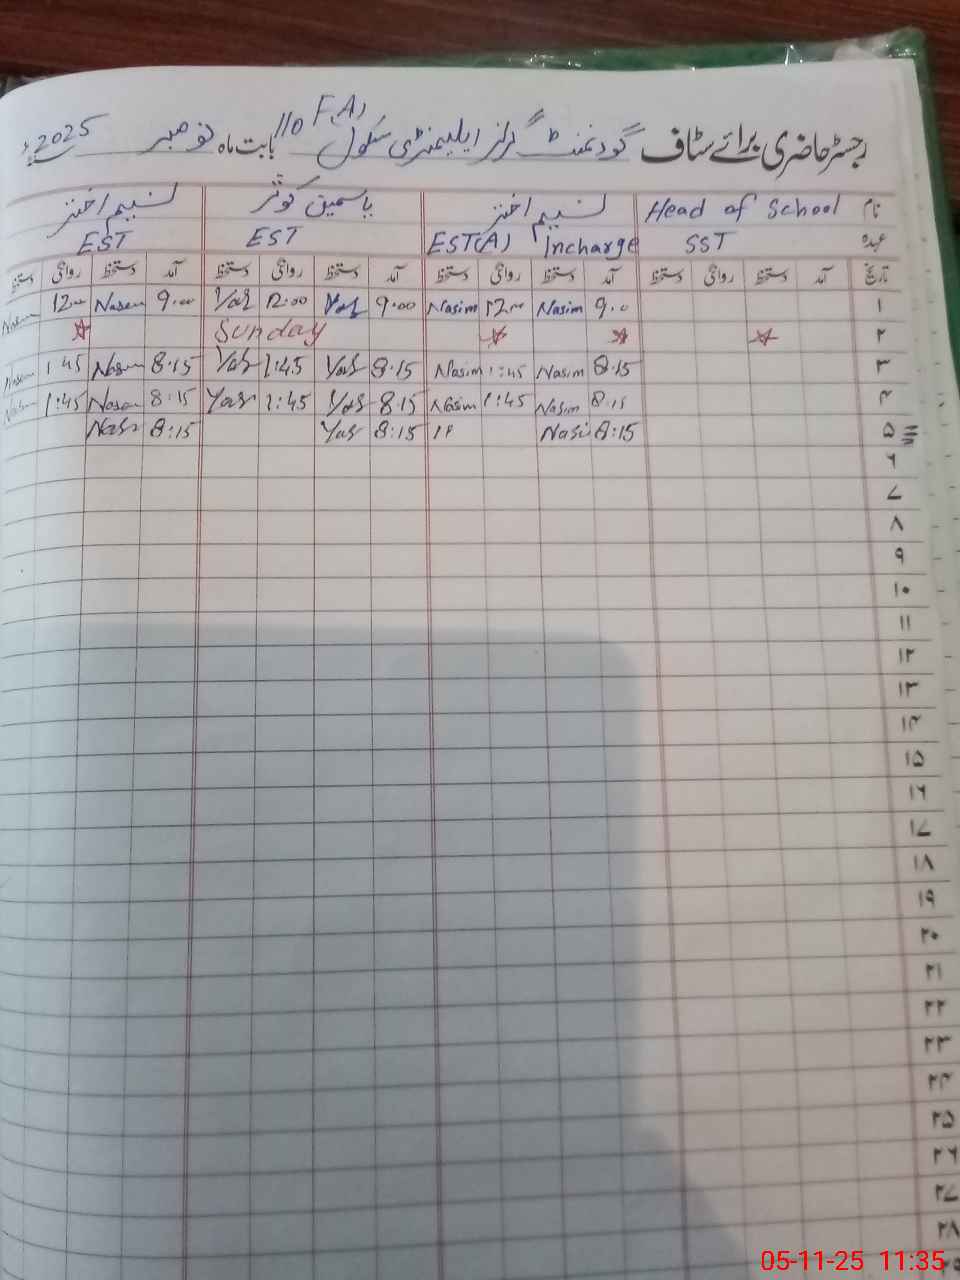 رجسٹر حاضری برائے سٹاف گورنمنٹ گرلز ایلیمنٹری سکول 110 F.A) بابت ماہ نومبر 2025ء
نام Head of School نسیم اختر یاسمین کوثر نسیم اختر
عہدہ SST EST(A) Incharge EST EST
تاریخ آمد دستخط روانگی دستخط آمد دستخط روانگی دستخط آمد دستخط روانگی دستخط آمد دستخط روانگی دستخط
۱ 9.0 Nasim 12.00 Nasim 9.00 Yas 12.00 Yas 9.00 Nasem 12.00 Nasem
۲ Sunday
۳ 8.15 Nasim 1:45 Nasim 8.15 Yas 1:45 Yas 8.15 Nasem 1:45 Nasem
۴ 8.15 Nasim 1:45 Nasim 8.15 Yas 1:45 Yas 8:15 Nasem 1:45 Nasem
۵ 8:15 Nasi 1P 8:15 Yas 8:15 Nas
۶
۷
۸
۹
۱۰
۱۱
۱۲
۱۳
۱۴
۱۵
۱۶
۱۷
۱۸
۱۹
۲۰
۲۱
۲۲
۲۳
۲۴
۲۵
۲۶
۲۷
۲۸
05-11-25 11:35